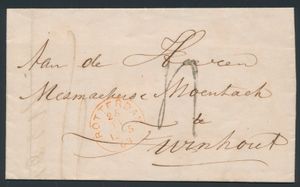 Aan de Heeren
Mesmaekers & Moentack
te
Turnhout
ROTTERDAM